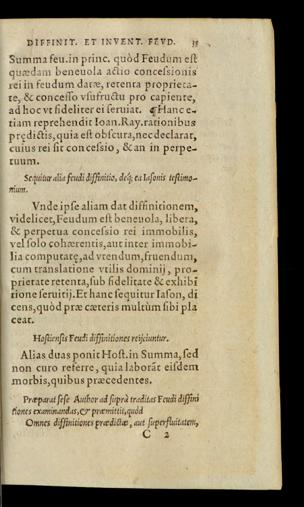 DIFFINIT. ET INVENT. FEVD. 35
Summa feu. in princ. quòd Feudum est
quædam beneuola actio concessionis
rei in feudum datæ, retenta proprieta-
te, & concesso vsufructu pro capiente,
ad hoc vt fideliter ei seruiat. ¶Hanc e-
tiam reprehendit Ioan. Ray. rationibus
prędictis, quia est obscura, nec declarat,
cuius rei sit concessio, & an in perpe-
tuum.
Sequitur alia feudi diffinitio, deq́; ea Iasonis testimo-
nium.
Vnde ipse aliam dat diffinitionem,
videlicet, Feudum est beneuola, libera,
& perpetua concessio rei immobilis,
vel solo cohærentis, aut inter immobi-
lia computatę, ad vtendum, fruendum,
cum translatione vtilis dominij, pro-
prietate retenta, sub fidelitate & exhibi
tione seruitij. Et hanc sequitur Iason, di
cens, quòd præ cæteris multùm sibi pla
ceat.
Hostiensis Feudi diffinitiones reijciuntur.
Alias duas ponit Host. in Summa, sed
non curo referre, quia laborāt eisdem
morbis, quibus præcedentes.
Præparat sese Author ad suprà traditas Feudi diffini
tiones examinandas, & præmittit, quòd
Omnes diffinitiones prædictæ, aut superfluitatem,
C 2